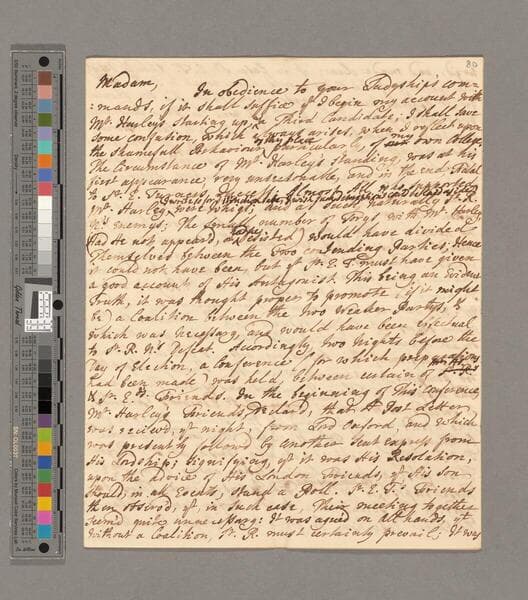 80
Madam,
In obedience to your Ladyship's com-
:mands, if it shall suffice yt I begin my account with
Mr. Harley's starting up, a Third Candidate; I shall save
some confusion, which always arises, when I reflect upon
the shamefull Behaviour particularly of my own College.
The Circumstance of Mr. Harley's standing, was at his
first appearance, very unreasonable, and in the end, Fatal
to Sr. E.
Mr. Harley, were Whigs, and
Ns. enemys: The small number of Torys with Mr. Harley
Had He not appeared, or desisted, would have divided
Themselves between the two contending Partys; Hence
it could not have been, but Sr. E. T. must have given
a good account of His Antagonist. This being an Evident
Truth, it was thought proper to promote (if it might
be) a Coalition between the two Weaker Partys; &
which was necessary, and would have been Effectual
to Sr. R. Ns. Defeat. Accordingly, two Nights before the
Day of Election, a Conference (for which
had been made) was held, between certain of
& Sr. E. T.s Friends. In the beginning of This Conference,
Mr. Harley's Friends declar'd, that A Post Letter
was receiv'd, yt night, from Lord Oxford, and which
was presently followed by Another sent express from
His Lordship; signifying, yt it was His Resolution,
upon the Advice of His London Friends, yt His Son
should, in all Events, stand a Poll. Sr. E. T.s Friends
then observ'd, yt in such case, Their meeting together
seem'd quite unnecessary: It was agreed on All hands, yt
without a Coalition, Sr. R. must certainly prevail; It was